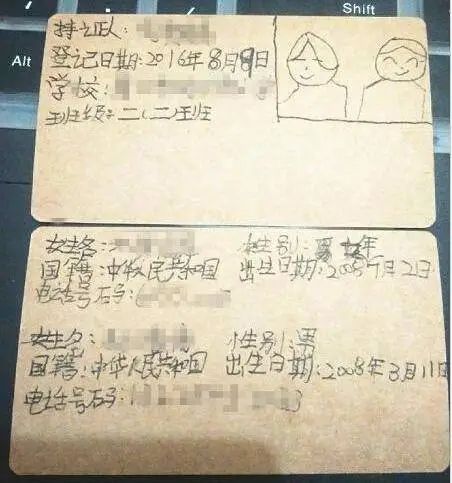 Shift
Alt
持证人:
登记日期:2016年8月9日
学校:
班级:二(二)班
姓名: 性别:
国籍:中华人民共和国 出生日期:2008 月21日
电话号码:
姓名: 性别:男
国籍:中华人民共和国 出生日期:2008年3月11日
电话号码: 3